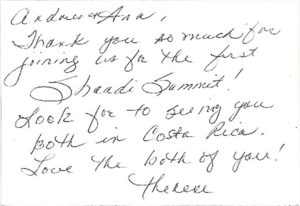 Andrew & Ana,
Thank you so much for
joining us for the first
Shaadi Summit!
Look for to seeing you
both in Costa Rica.
Love the both of you!
Therese